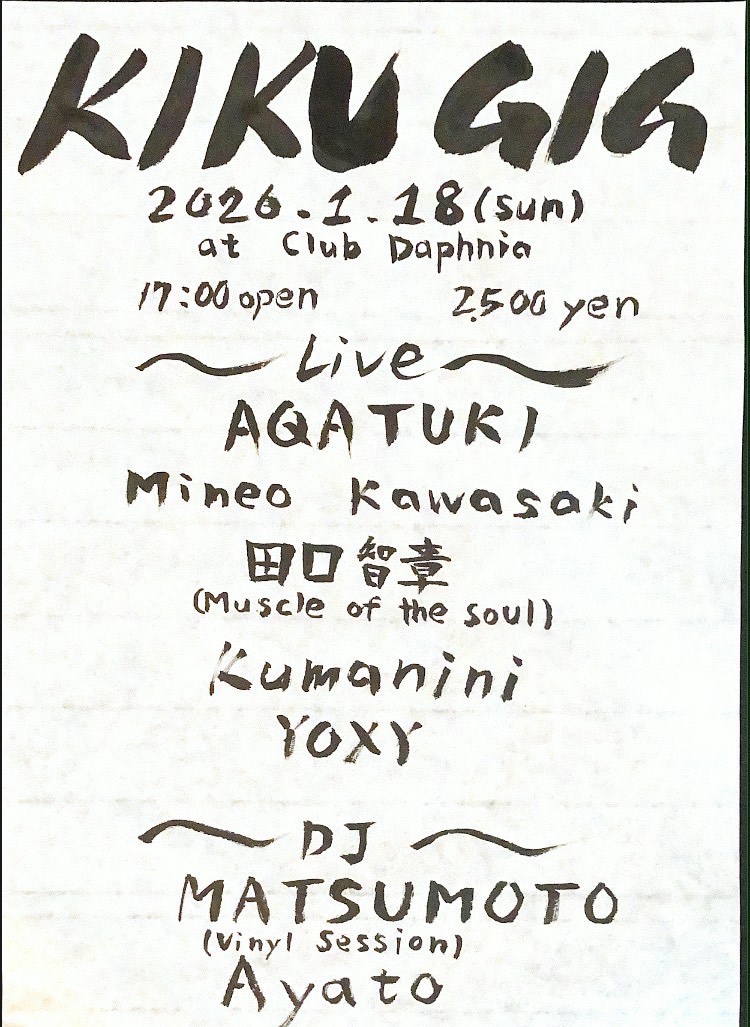 KIKU GIG
2026.1.18(sun)
at Club Daphnia
17:00 open 2,500 yen
Live
AQATUKI
Mineo Kawasaki
田口智章
(Muscle of the soul)
Kumanini
YOXY
DJ
MATSUMOTO
(Vinyl Session)
Ayato